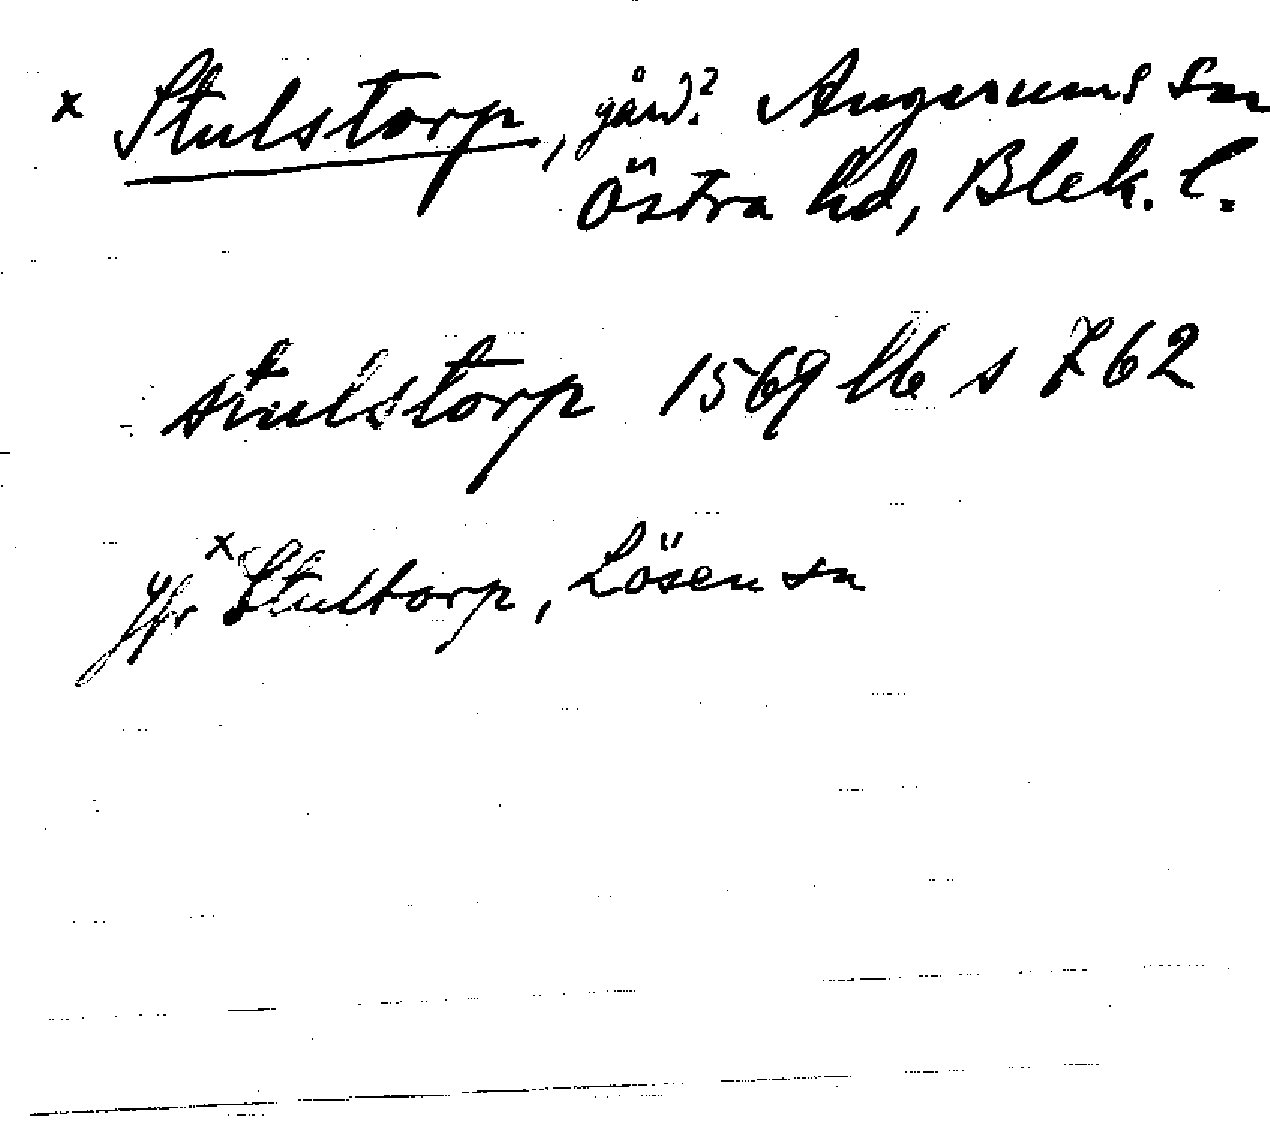 x Stulstorp, gård? Augerums sn
Östra hd, Blek. l.
stulstorp 1569 lb s 762
Jfr x Stultorp, Lösen sn